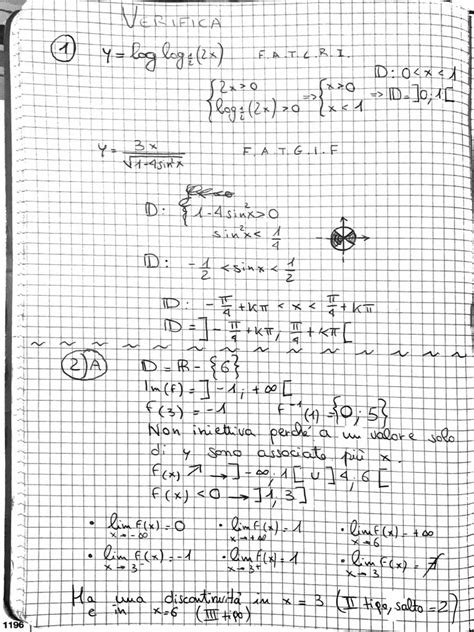 VERIFICA
① y = log log_{1/2}(2x)   F.A.T.C.R.I.
D: 0 < x < 1
{2x > 0 ⇒ {x > 0 ⇒ D = ]0; 1[
{log_{1/2}(2x) > 0   {x < 1
y = 3x / √(1-4sin²x)   F.A.T.G.I.F
D: {1-4sin²x > 0
sin²x < 1/4
D: -1/2 < sinx < 1/2
D: -π/4 + Kπ < x < π/4 + Kπ
D = ]-π/4 + Kπ, π/4 + Kπ[
②A   D = R - {6}
Im(f) = ]-1; +∞[
f(3) = -1   f⁻¹(1) = {0; 5}
Non iniettiva perché a un valore solo
di y sono associate più x.
f(x) ↗ → ]-∞; 1[ ∪ ]4; 6[
f(x) < 0 → ]1, 3]
• lim x→-∞ f(x) = 0   • lim x→+∞ f(x) = 1   • lim x→6 f(x) = +∞
• lim x→3⁻ f(x) = -1   • lim x→3⁺ f(x) = 1   • lim x→3 f(x) = ∄
Ha una discontinuità in x = 3 (II tipo, salto = 2)
e in x = 6 (III tipo)
1196